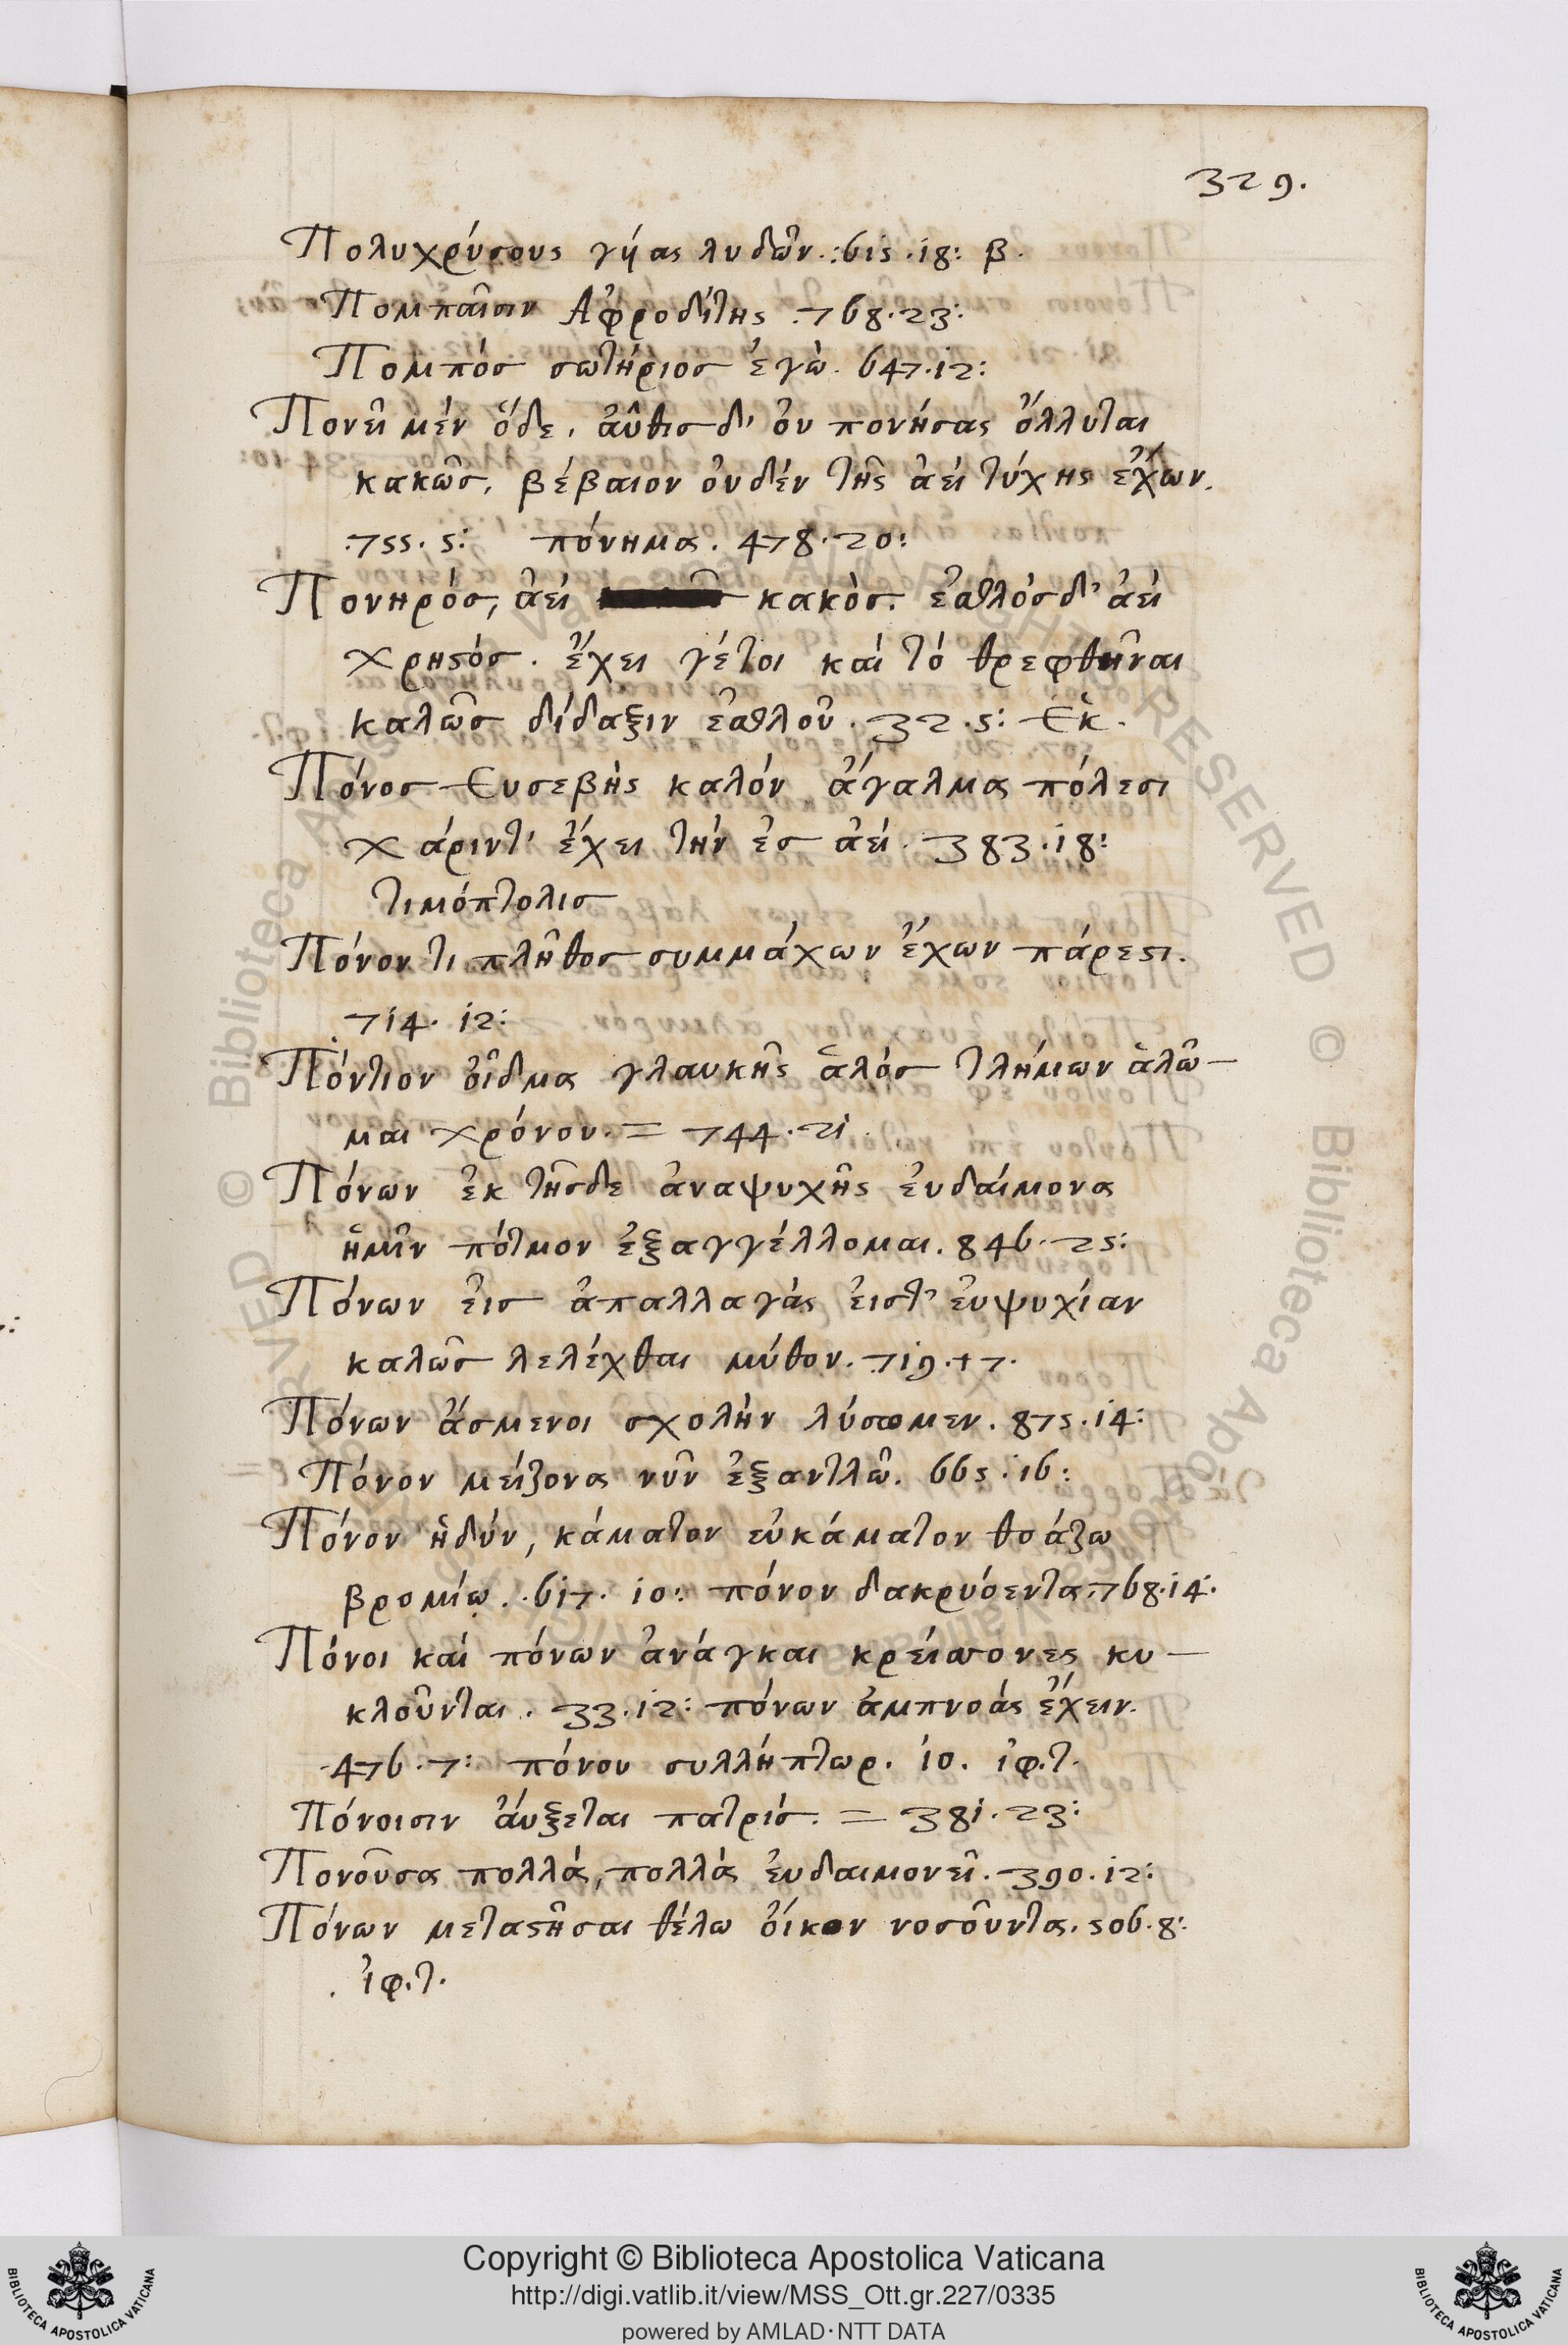 329.
Πολυχρύσους γύας λυδῶν.:615.18: β.
Πομπαῖσιν Ἀφροδίτης .768.23:
Πομπός σωτήριος ἐγώ. 647.12:
Πονεῖ μέν ὅδε, ἀῦθις δ' ὀυ πονήσας ὄλλυται
κακῶς, βέβαιον ὀυδέν τῆς ἀεί τύχης ἔχων.
.755.5: πόνημα. 478.20:
Πονηρός, ἀεί κακὸς. ἐσθλός δ' ἀεί
χρηϛός. ἔχει γέτοι καί τό θρεφθῆναι
καλῶς δίδαξιν ἐσθλοῦ. 32.5: Ἑκ.
Πόνος Ευσεβὴς καλόν ἄγαλμα πόλεσι
χάριντ' ἔχει τήν ἐς ἀεί. 383.18:
τιμόπτολις
Πόνον τι πλῆθος συμμάχων ἔχων πάρεϛι.
714.12:
Πόντιον οἶδμα γλαυκῆς ἁλός τλήμων ἀλῶ-
μαι χρόνον.= 744.21
Πόνων ἐκ τῆσδε ἀναψυχῆς ἐυδαίμονα
ἡμῖν πότμον ἐξαγγέλλομαι. 846.25:
Πόνων ἐις ἀπαλλαγάς ἐιστ' ἐυψυχίαν
καλῶς λελέχθαι μύθον. 719.17.
Πόνων ἄσμενοι σχολὴν λύσομεν. 875.14:
Πόνον μείζονα νῦν ἐξαντλῶ. 665.16:
Πόνον ἡδύν, κάματον εὐκάματον θοάζω
βρομίῳ. .617.10: πόνον δακρυόεντα.768.14.
Πόνοι καί πόνων ἀνάγκαι κρείσσονες κυ-
κλοῦνται. 33.12: πόνων ἀμπνοάς ἔχειν.
.476.7: πόνου συλλήπτωρ. 10. ἰφ.τ.
Πόνοισιν ἄυξεται πατρίς. = 381.23:
Πονοῦσα πολλά, πολλά ἐυδαιμονεῖ. 390.12:
Πόνων μεταϛῆσαι θέλω ὄικον νοσοῦντα. 506.8:
. ἰφ.τ.
Copyright © Biblioteca Apostolica Vaticana
http://digi.vatlib.it/view/MSS_Ott.gr.227/0335
powered by AMLAD·NTT DATA